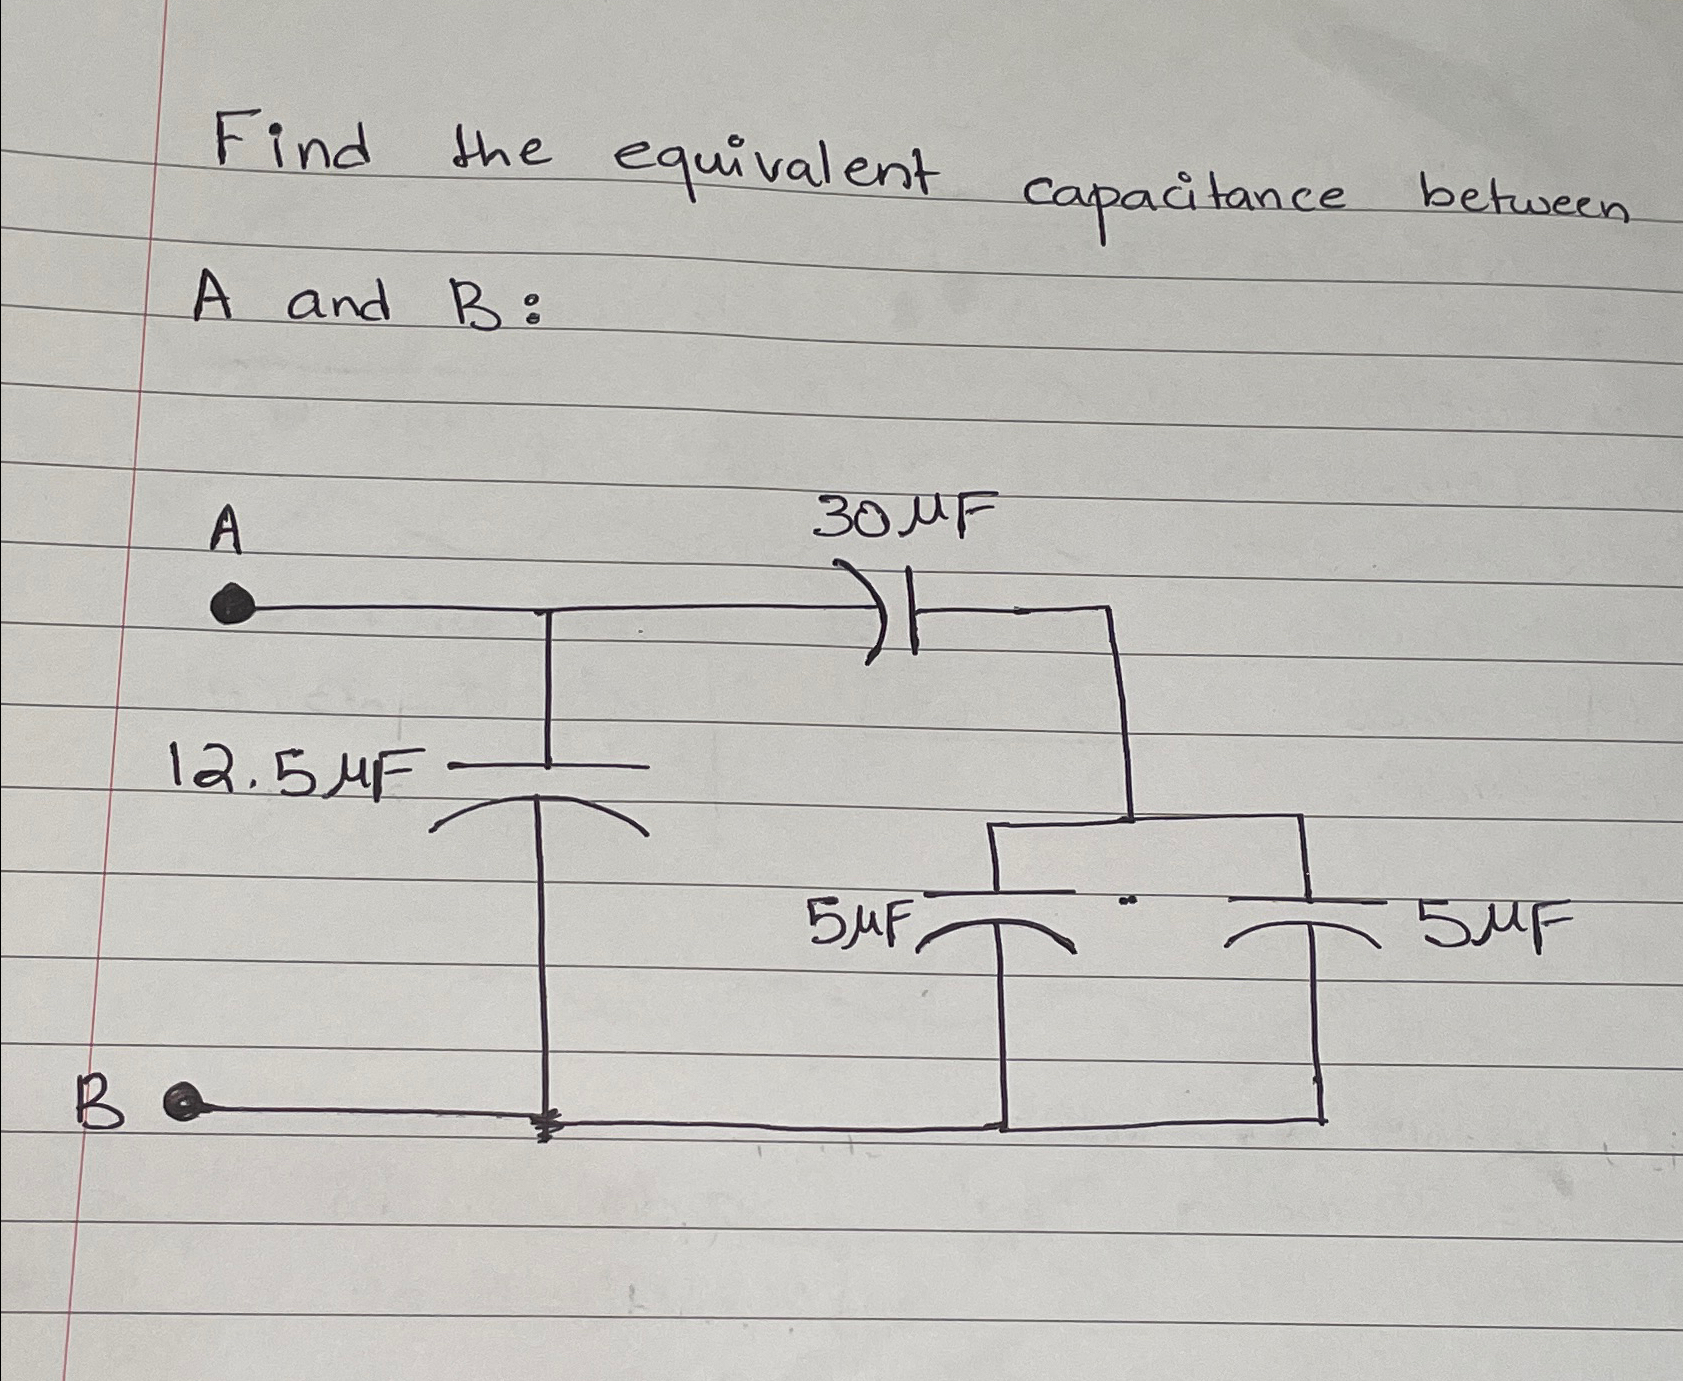 Find the equivalent capacitance between
A and B:
A
30 μF
12.5 μF
5 μF
5 μF
B